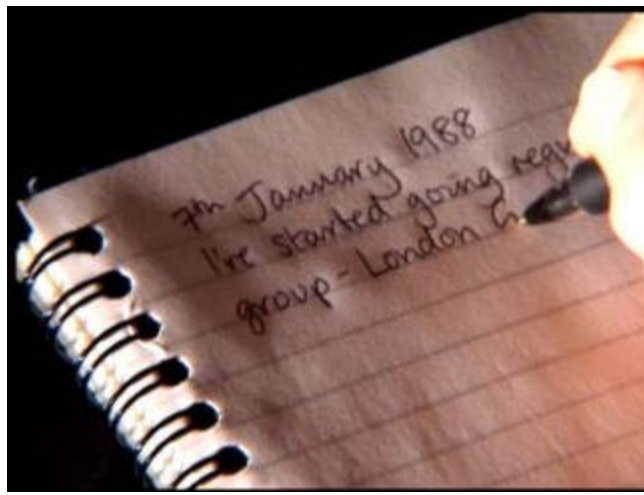 7th January 1988
I've started going
group - London